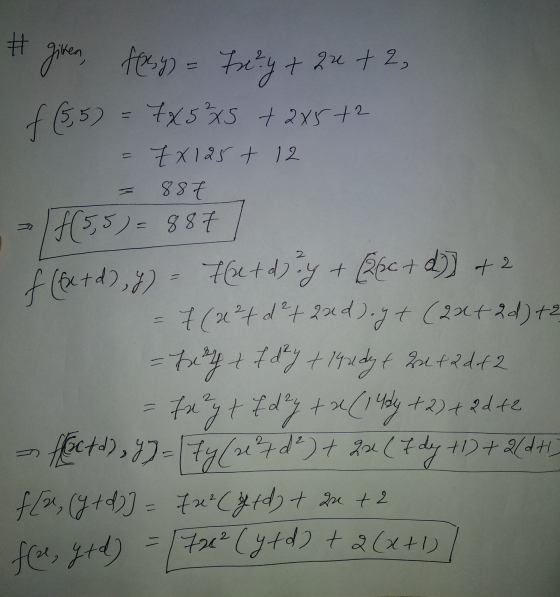 # given, f(x,y) = 7x²y + 2x + 2,
f(5,5) = 7×5²×5 + 2×5+2
= 7×125 + 12
= 887
⇒ f(5,5) = 887
f((x+d), y) = 7(x+d)²·y + [2(x+d)] + 2
= 7(x²+d²+2xd)·y + (2x+2d)+2
= 7x²y + 7d²y + 14xdy + 2x+2d+2
= 7x²y + 7d²y + x(14dy+2) + 2d+2
⇒ f[(x+d), y] = 7y(x²+d²) + 2x(7dy+1) + 2(d+1)
f[x, (y+d)] = 7x²(y+d) + 2x + 2
f(x, y+d) = 7x²(y+d) + 2(x+1)